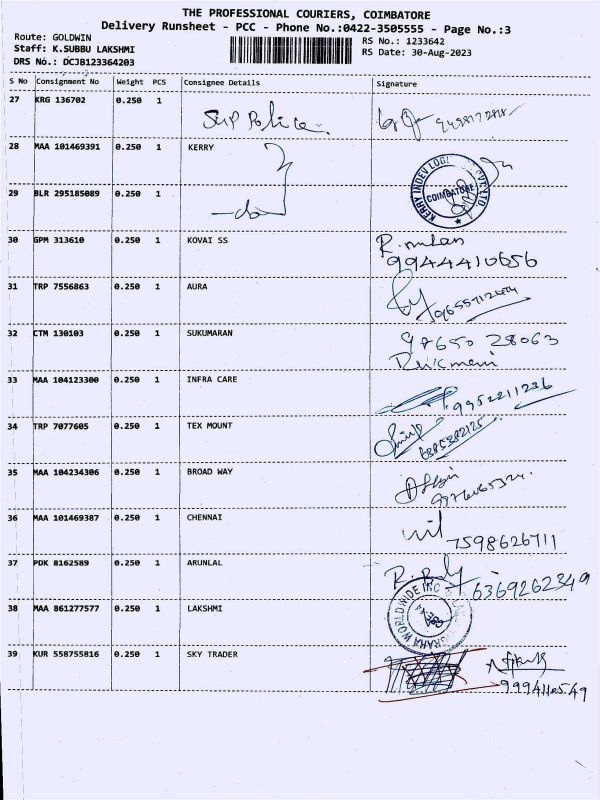 THE PROFESSIONAL COURIERS, COIMBATORE
Delivery Runsheet - PCC - Phone No.:0422-3505555 - Page No.:3
Route: GOLDWIN
Staff: K.SUBBU LAKSHMI
DRS No.: DCJB123364203
RS No.: 1233642
RS Date: 30-Aug-2023
S No Consignment No Weight PCS Consignee Details Signature
27 KRG 136702 0.250 1 Sup Police
28 MAA 101469391 0.250 1 KERRY
29 BLR 295185089 0.250 1 -do-
KERRY INDEV LOGI PVT. LTD.
COIMBATORE
30 GPM 313610 0.250 1 KOVAI SS
9944410656
31 TRP 7556863 0.250 1 AURA
32 CTM 130103 0.250 1 SUKUMARAN 98650 28063
33 MAA 104123300 0.250 1 INFRA CARE 9952211236
34 TRP 7077605 0.250 1 TEX MOUNT 6385382125
35 MAA 104234306 0.250 1 BROAD WAY
36 MAA 101469387 0.250 1 CHENNAI
7598626711
37 PDK 8162589 0.250 1 ARUNLAL 6369262349
38 MAA 861277577 0.250 1 LAKSHMI
WORLDWIDE INC
39 KUR 558755816 0.250 1 SKY TRADER